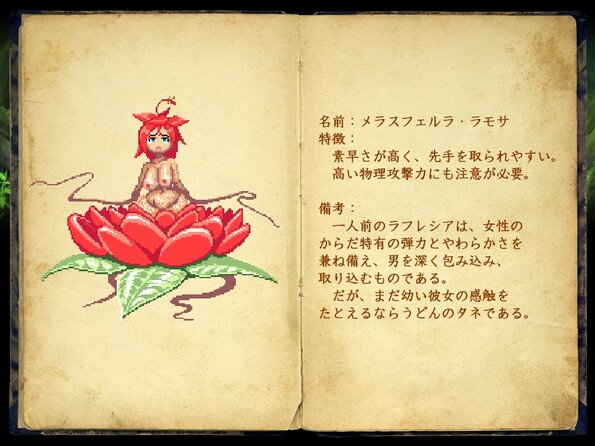 名前：メラスフェルラ・ラモサ
特徴：
素早さが高く、先手を取られやすい。
高い物理攻撃力にも注意が必要。
備考：
一人前のラフレシアは、女性の
からだ特有の弾力とやわらかさを
兼ね備え、男を深く包み込み、
取り込むものである。
だが、まだ幼い彼女の感触を
たとえるならうどんのタネである。